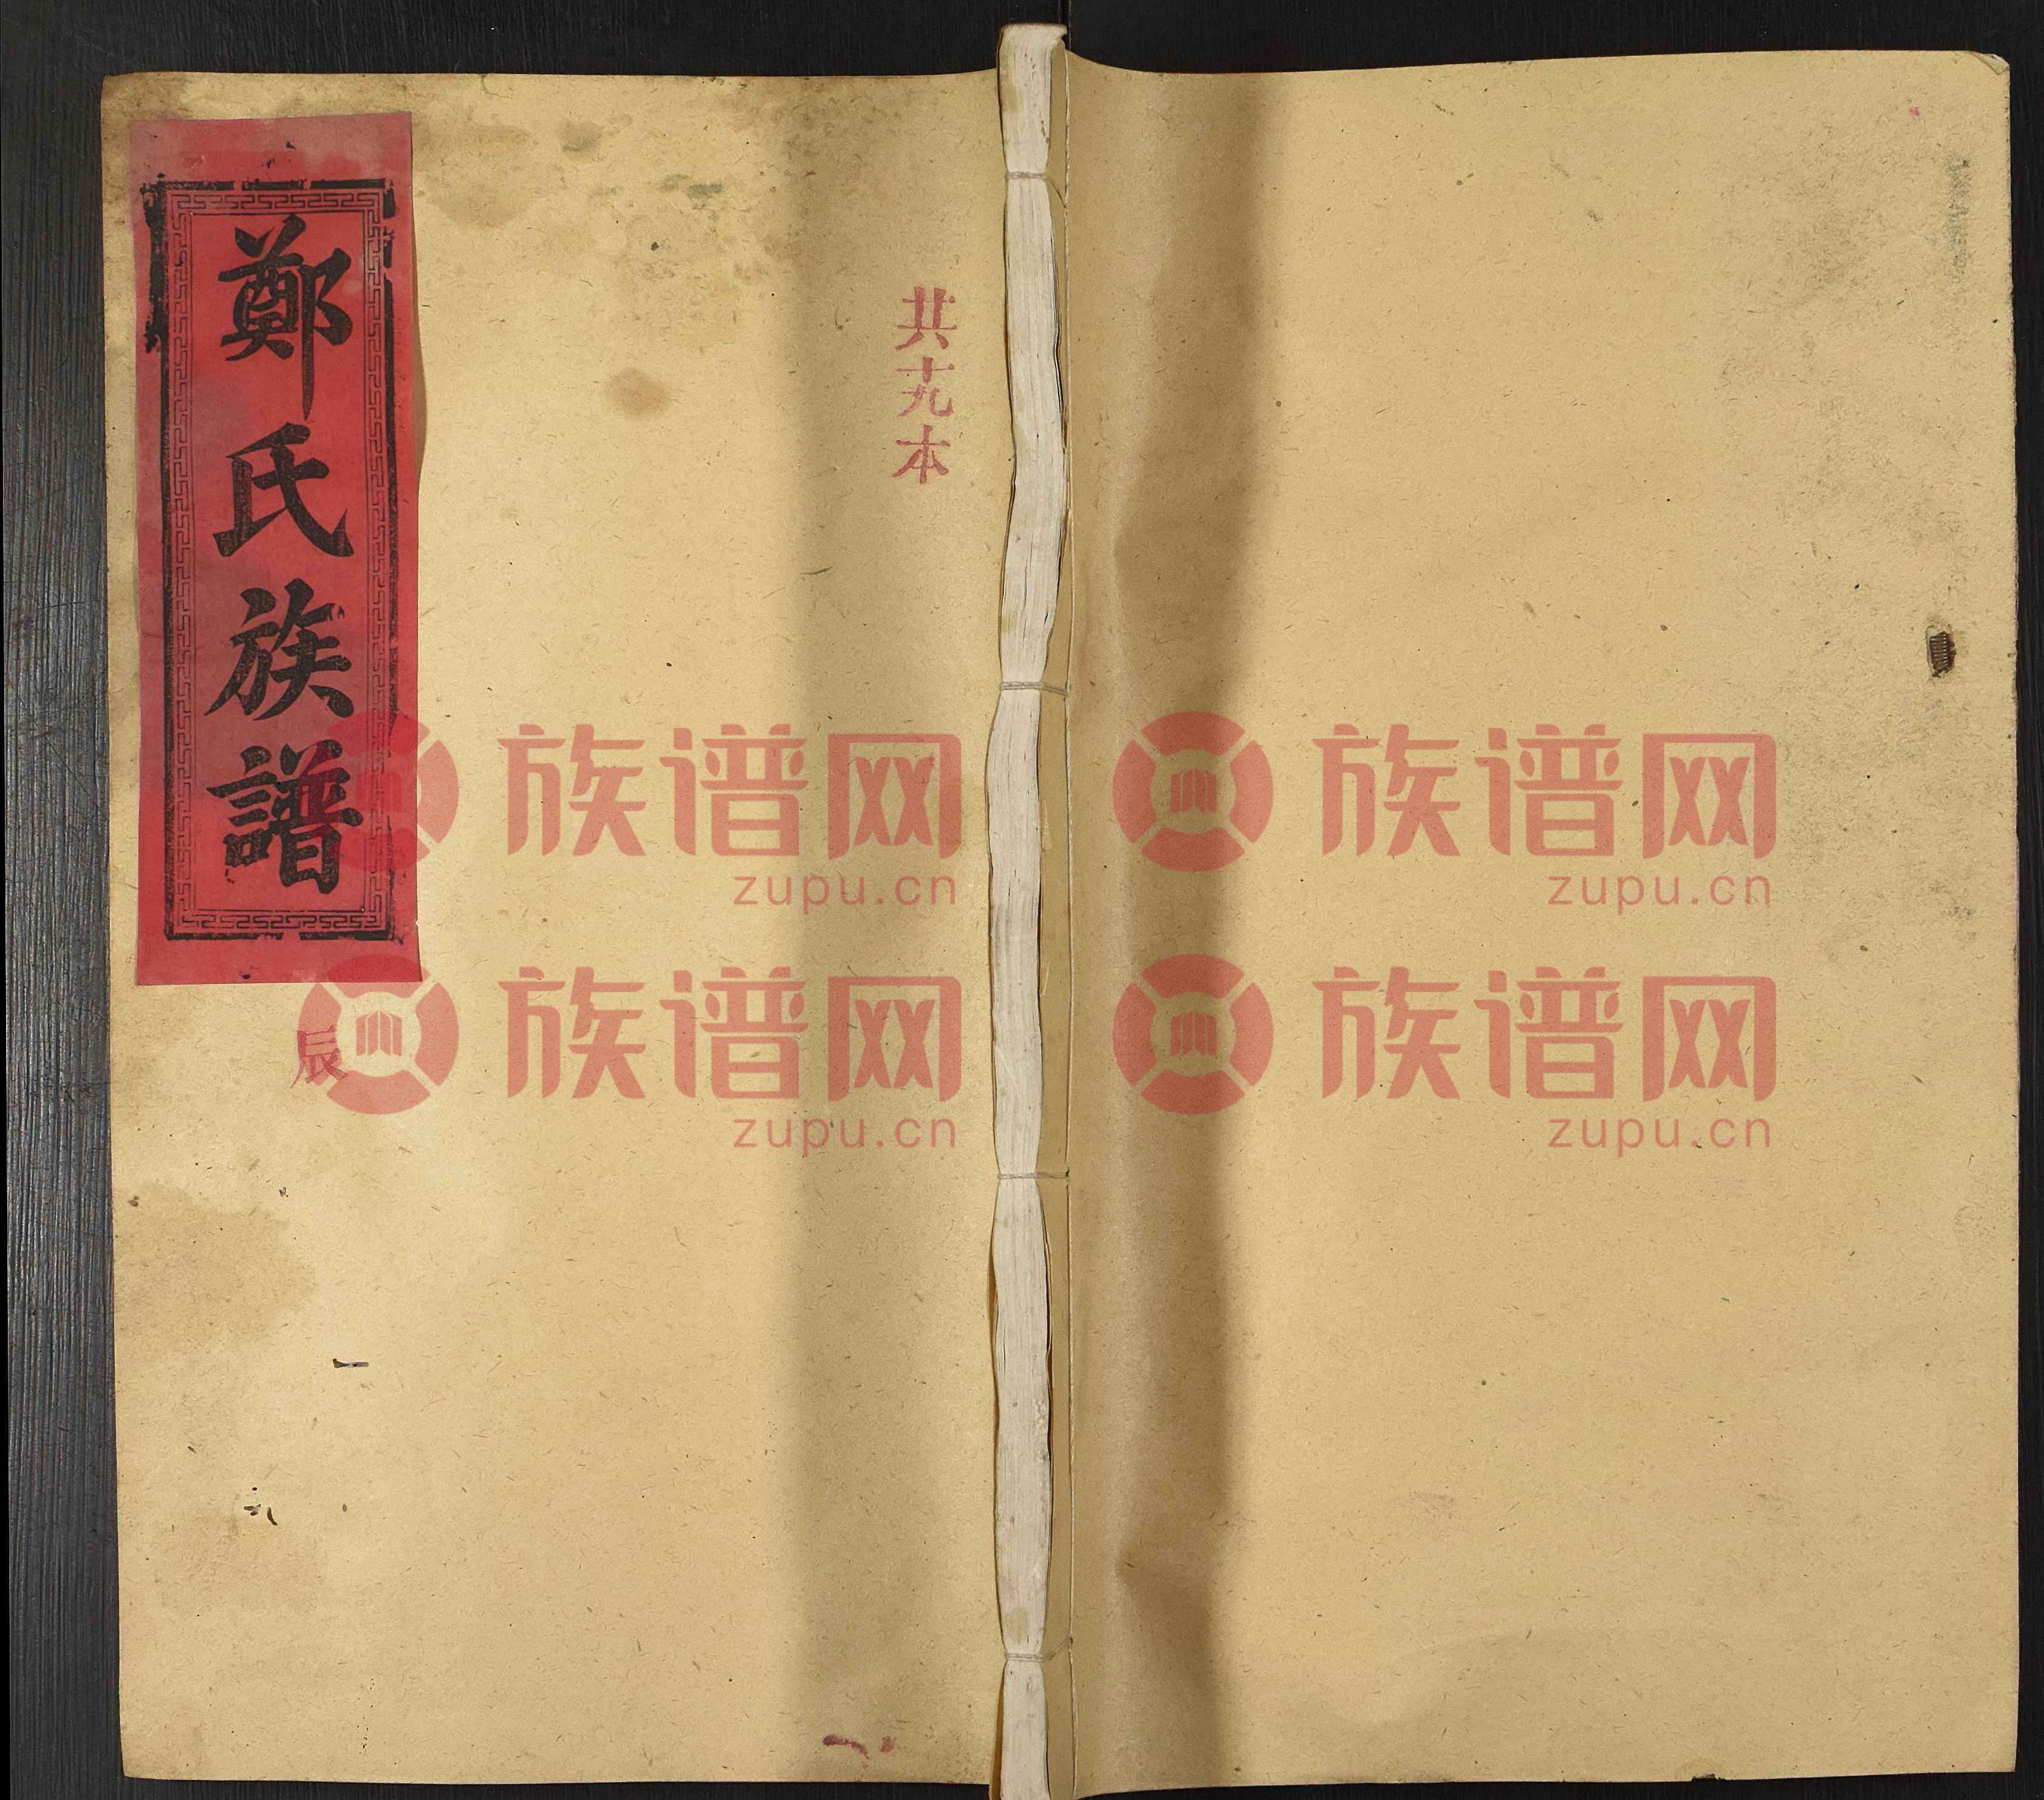 鄭氏族譜
共十九本
辰
族谱网
zupu.cn
族谱网
zupu.cn
族谱网
zupu.cn
族谱网
zupu.cn